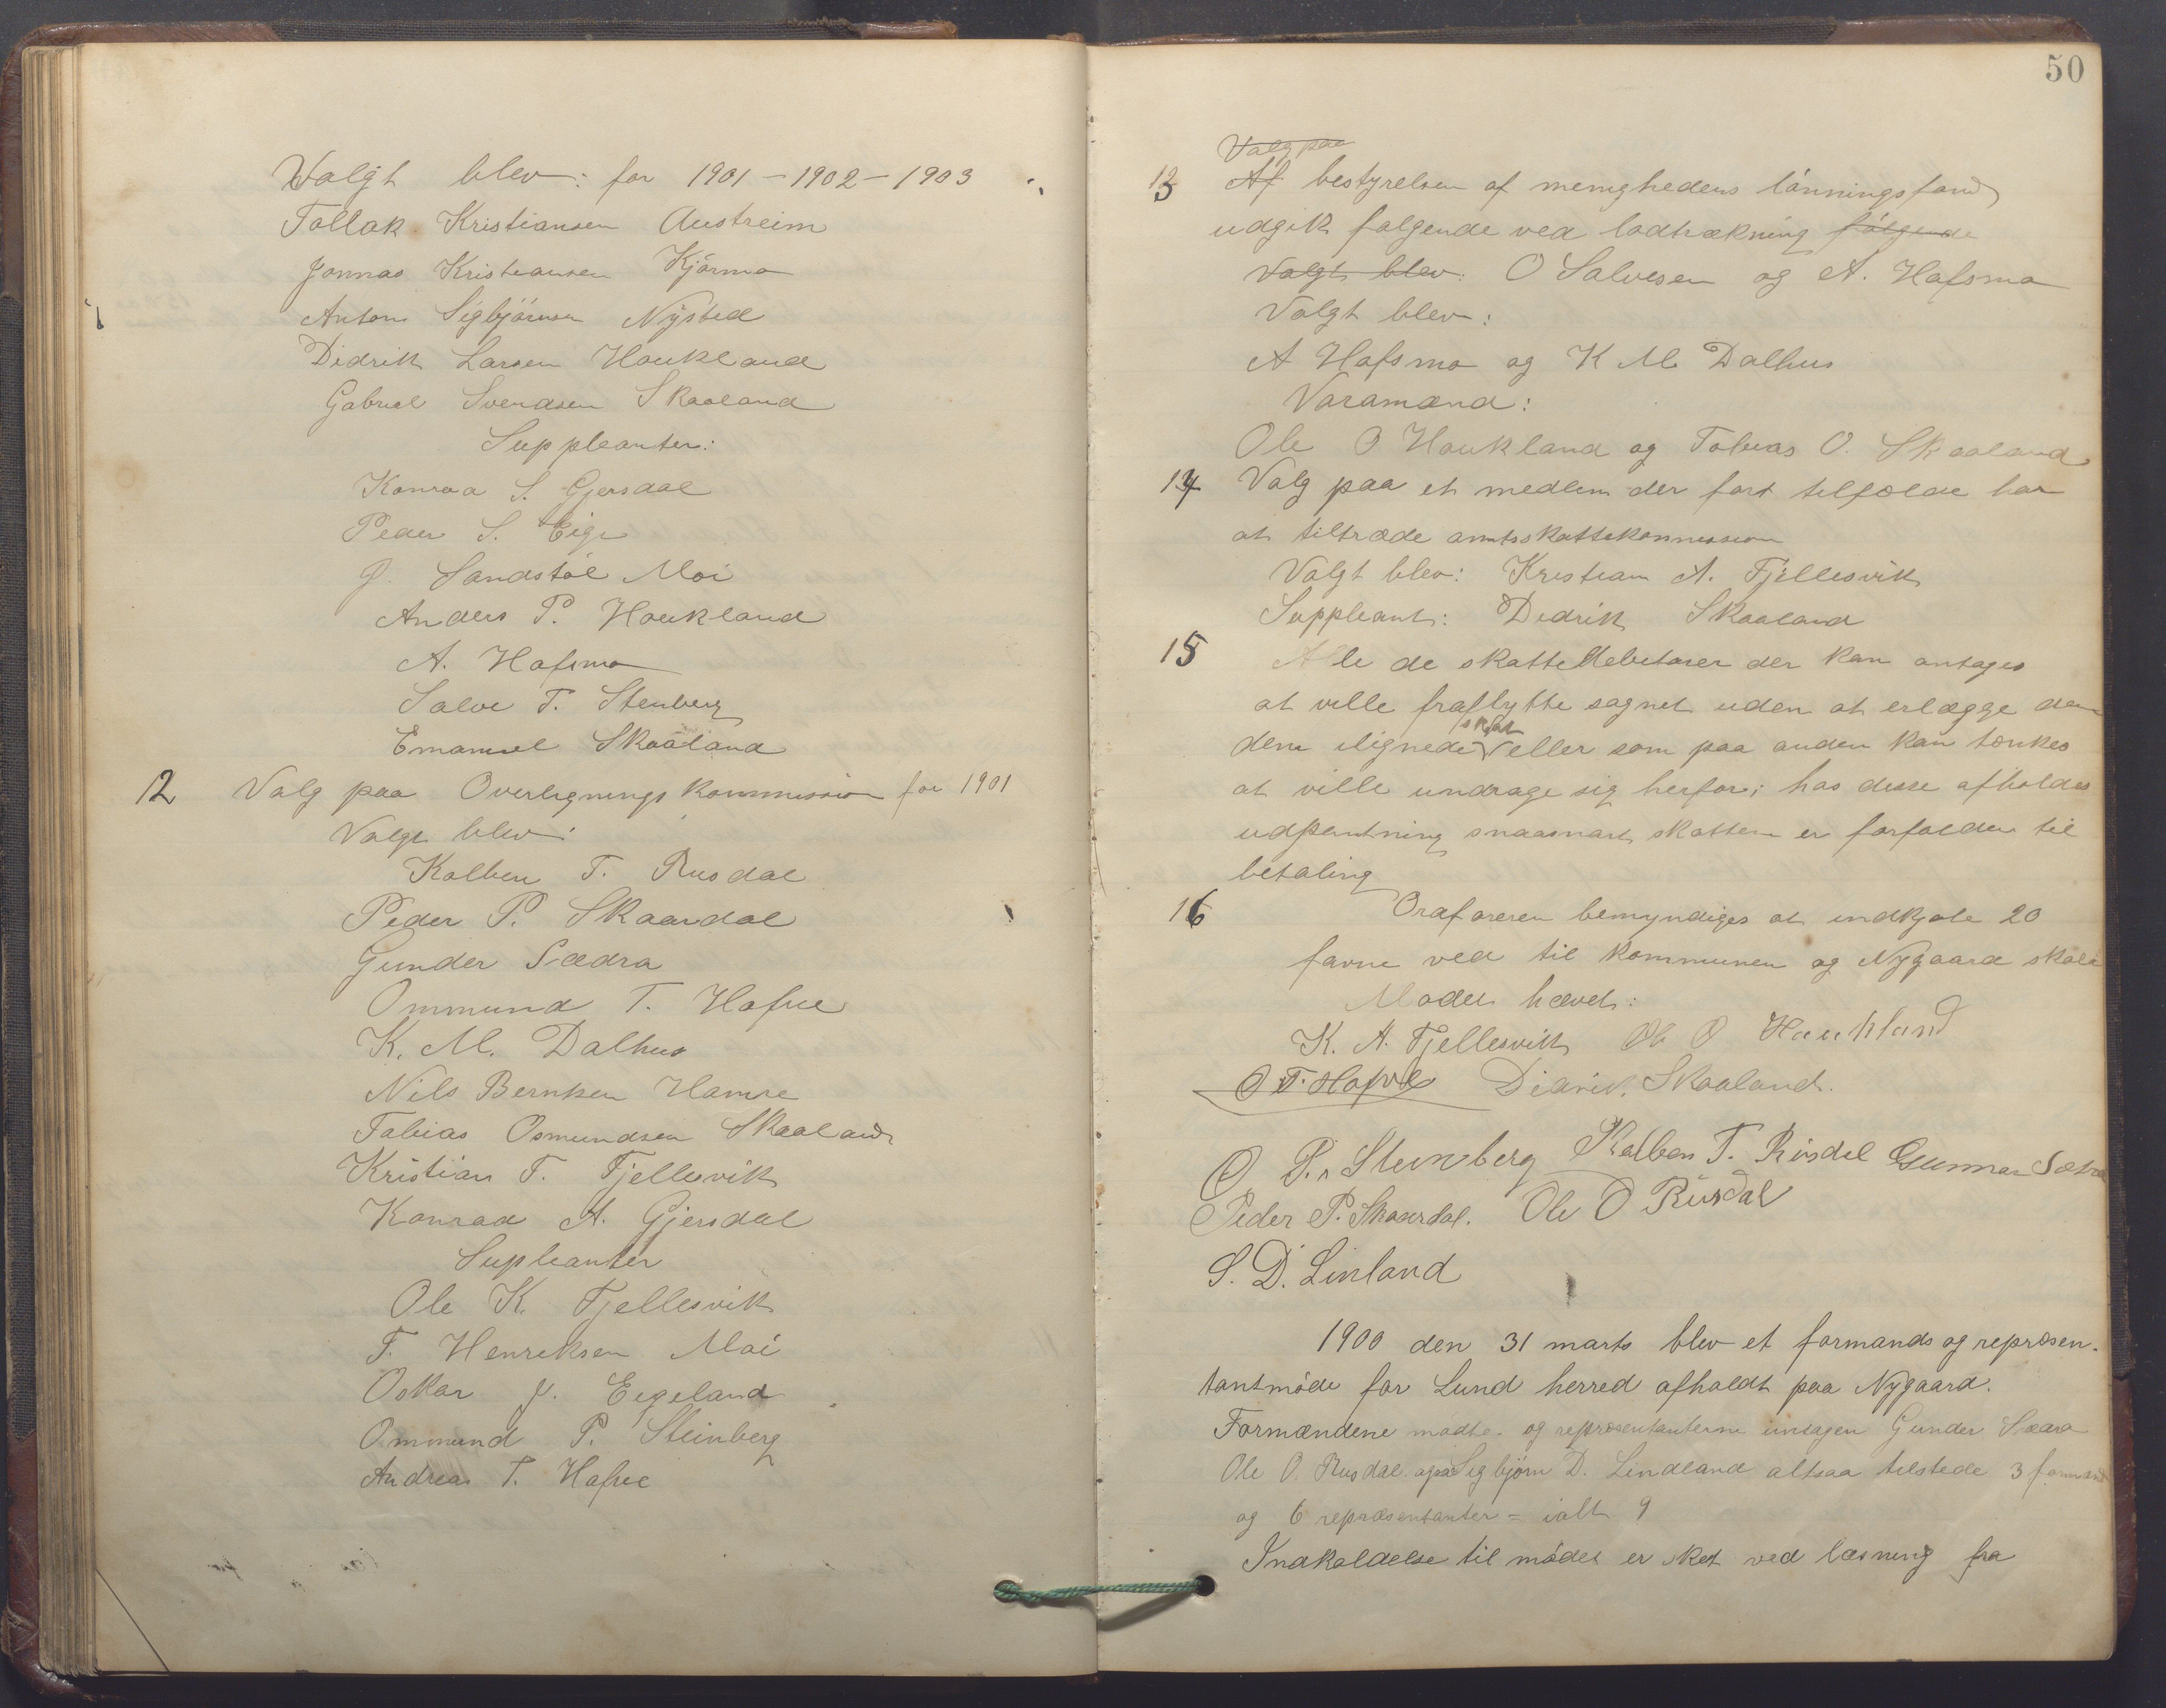 Valgt blev: for 1901 – 1902 – 1903
Tallak Kristiansen Austreim
Jonnas Kristiansen Kjörmo
Anton Sigbjörnsen Nysted
Didrik Larsen Haukland
Gabriel Svendsen Skaaland
Suppleanter:
Konrad S. Gjersdal
Peder S. Eige
J. Sandstöl Moi
Anders P. Haukland
A. Hafsmo
Salve T. Stenberg
Emanuel Skaaland
12 Valg paa Overligningskommission for 1901
Valgt blev:
Kolben T. Rusdal
Peder P. Skaardal
Gunder Sædra
Ommund T. Hafue
K. M. Dalhus
Nils Berntsen Hamre
Tobias Osmundsen Skaaland
Kristian T. Fjellesvik
Konrad A. Gjersdal
Supleanter
Ole K. Fjellesvik
T. Henriksen Moi
Oskar J. Eigeland
Ommund P. Steinberg
Andreas T. Hafue
50
Valg paa
13 Af bestyrelsen af menighedens lönningsfond
udgik folgende ved lodtrækning fölgende
Valgt blev: O Salvesen og A. Hafsmo
Valgt blev:
A Hafsmo og K M Dalhus
Varamænd:
Ole O Haukland og Tobias O. Skaaland
14 Valg paa et medlem der fort tilfælde har
at tiltræde amtsskattekommission
Valgt blev: Kristian A. Fjellesvik
Suppleant: Didrik Skaaland
15 Alle de skattedebitorer der kan antages
at ville fraflytte sognet uden at erlægge den
dem ilignede skat eller som paa anden kan tænkes
at ville undrage sig herfor; hos desse afholdes
udpantning snaasnart skatten er forfalden til
betaling
16 Ordforeren bemyndiges at indkjobe 20
favne ved til kommunen og Nygaard skole
Modet hævet:
K. A. Fjellesvik Ole O Haukland
O T. Hafue Didrik Skaaland.
O P. Steinberg Kolben T. Rusdal Gunnar Sædra
Peder P. Skaardal. Ole O Rusdal
S. D. Linland
1900 den 31 marts blev et formands og repræsen-
tantmöde for Lund herred afholdt paa Nygaard.
Formændene mödte og repræsentanterne untagen Gunder Sædra
Ole O. Rusdal. ogsaa Sigbjörn D. Lindland altsaa tilstede 3 formænd
og 6 repræsentanter = ialt 9
Indkaldelse til mödet er sket ved læsning fra